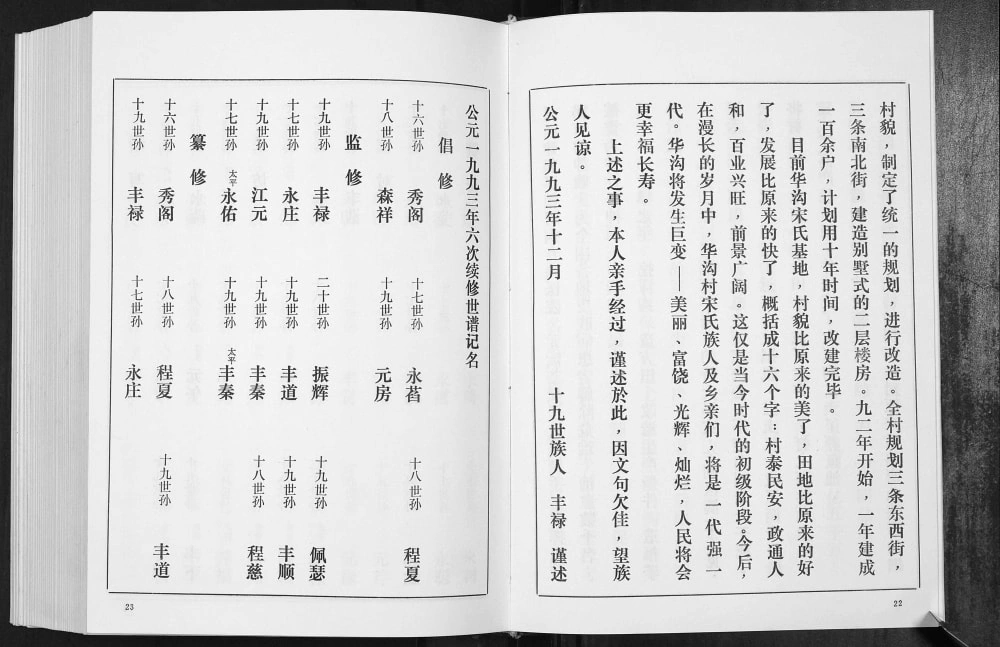 村貌，制定了统一的规划，进行改造。全村规划三条东西街，
三条南北街，建造别墅式的二层楼房。九二年开始，一年建成
一百余户，计划用十年时间，改建完毕。
目前华沟宋氏基地，村貌比原来的美了，田地比原来的好
了，发展比原来的快了，概括成十六个字：村泰民安，政通人
和，百业兴旺，前景广阔。这仅是当今时代的初级阶段。今后，
在漫长的岁月中，华沟村宋氏族人及乡亲们，将是一代强一
代。华沟将发生巨变——美丽、富饶、光辉、灿烂，人民将会
更幸福长寿。
上述之事，本人亲手经过，谨述於此，因文句欠佳，望族
人见谅。
十九世族人 丰禄 谨述
公元一九九三年十二月
22
公元一九九三年六次续修世谱记名
倡修
十六世孙 秀阁 十七世孙 永萏 十八世孙 程夏
十八世孙 森祥 十九世孙 元房
监修
十九世孙 丰禄 二十世孙 振辉 十九世孙 佩瑟
十七世孙 永庄 十九世孙 丰道 十九世孙 丰顺
十九世孙 江元 十九世孙 丰秦 十八世孙 程慈
十七世孙 太平 永佑 十九世孙 太平 丰秦
纂修
十六世孙 秀阁 十八世孙 程夏 十九世孙 丰道
十九世孙 丰禄 十七世孙 永庄
23